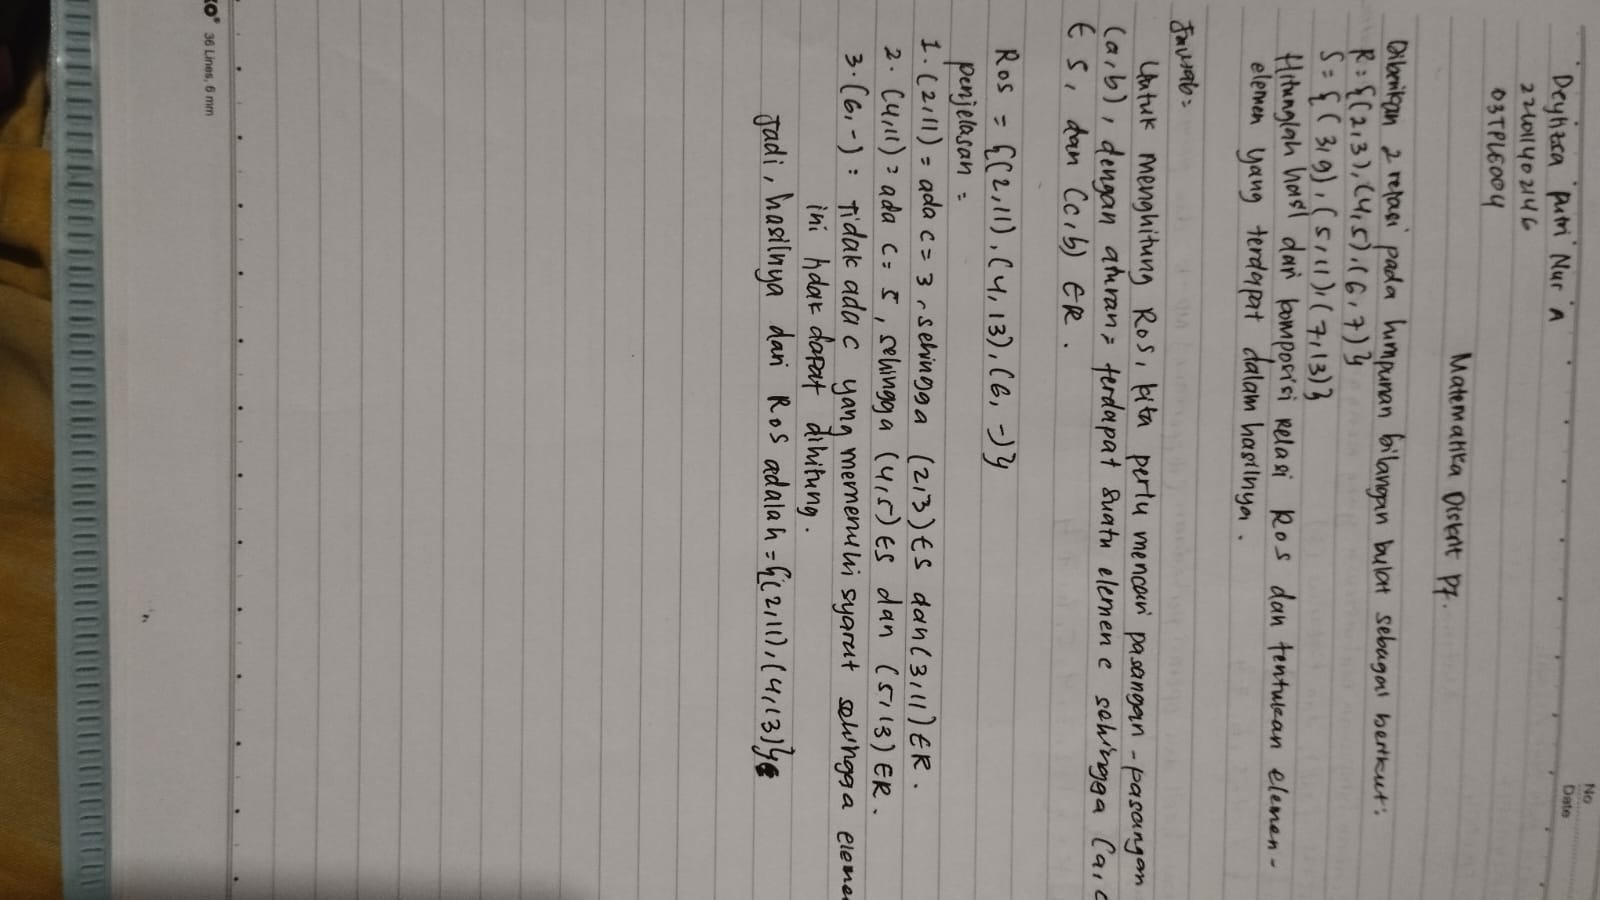 No
Date
Deylizca Putri Nur A
221011402146
03TPLE004
Matematika Diskrit P7.
Diberikan 2 relasi pada himpunan bilangan bulat sebagai berikut:
R = {(2,3), (4,5), (6,7)}
S = {(3,9), (5,11), (7,13)}
Hitunglah hasil dari komposisi Relasi RoS dan tentukan elemen-
elemen yang terdapat dalam hasilnya.
Jawab=
Untuk menghitung RoS, kita perlu mencari pasangan-pasangan
(a,b), dengan aturan= terdapat suatu elemen c sehingga (a,c
∈ S, dan (c,b) ∈ R.
RoS = {(2,11), (4,13), (6,-)}
penjelasan =
1. (2,11) = ada c = 3, sehingga (2,3) ∈ S dan (3,11) ∈ R.
2. (4,11) = ada c = 5, sehingga (4,5) ∈ S dan (5,13) ∈ R.
3. (6,-) = Tidak ada c yang memenuhi syarat sehingga eleme
ini tidak dapat dihitung.
Jadi, hasilnya dari RoS adalah = {(2,11), (4,13)}
KO® 36 Lines, 6 mm